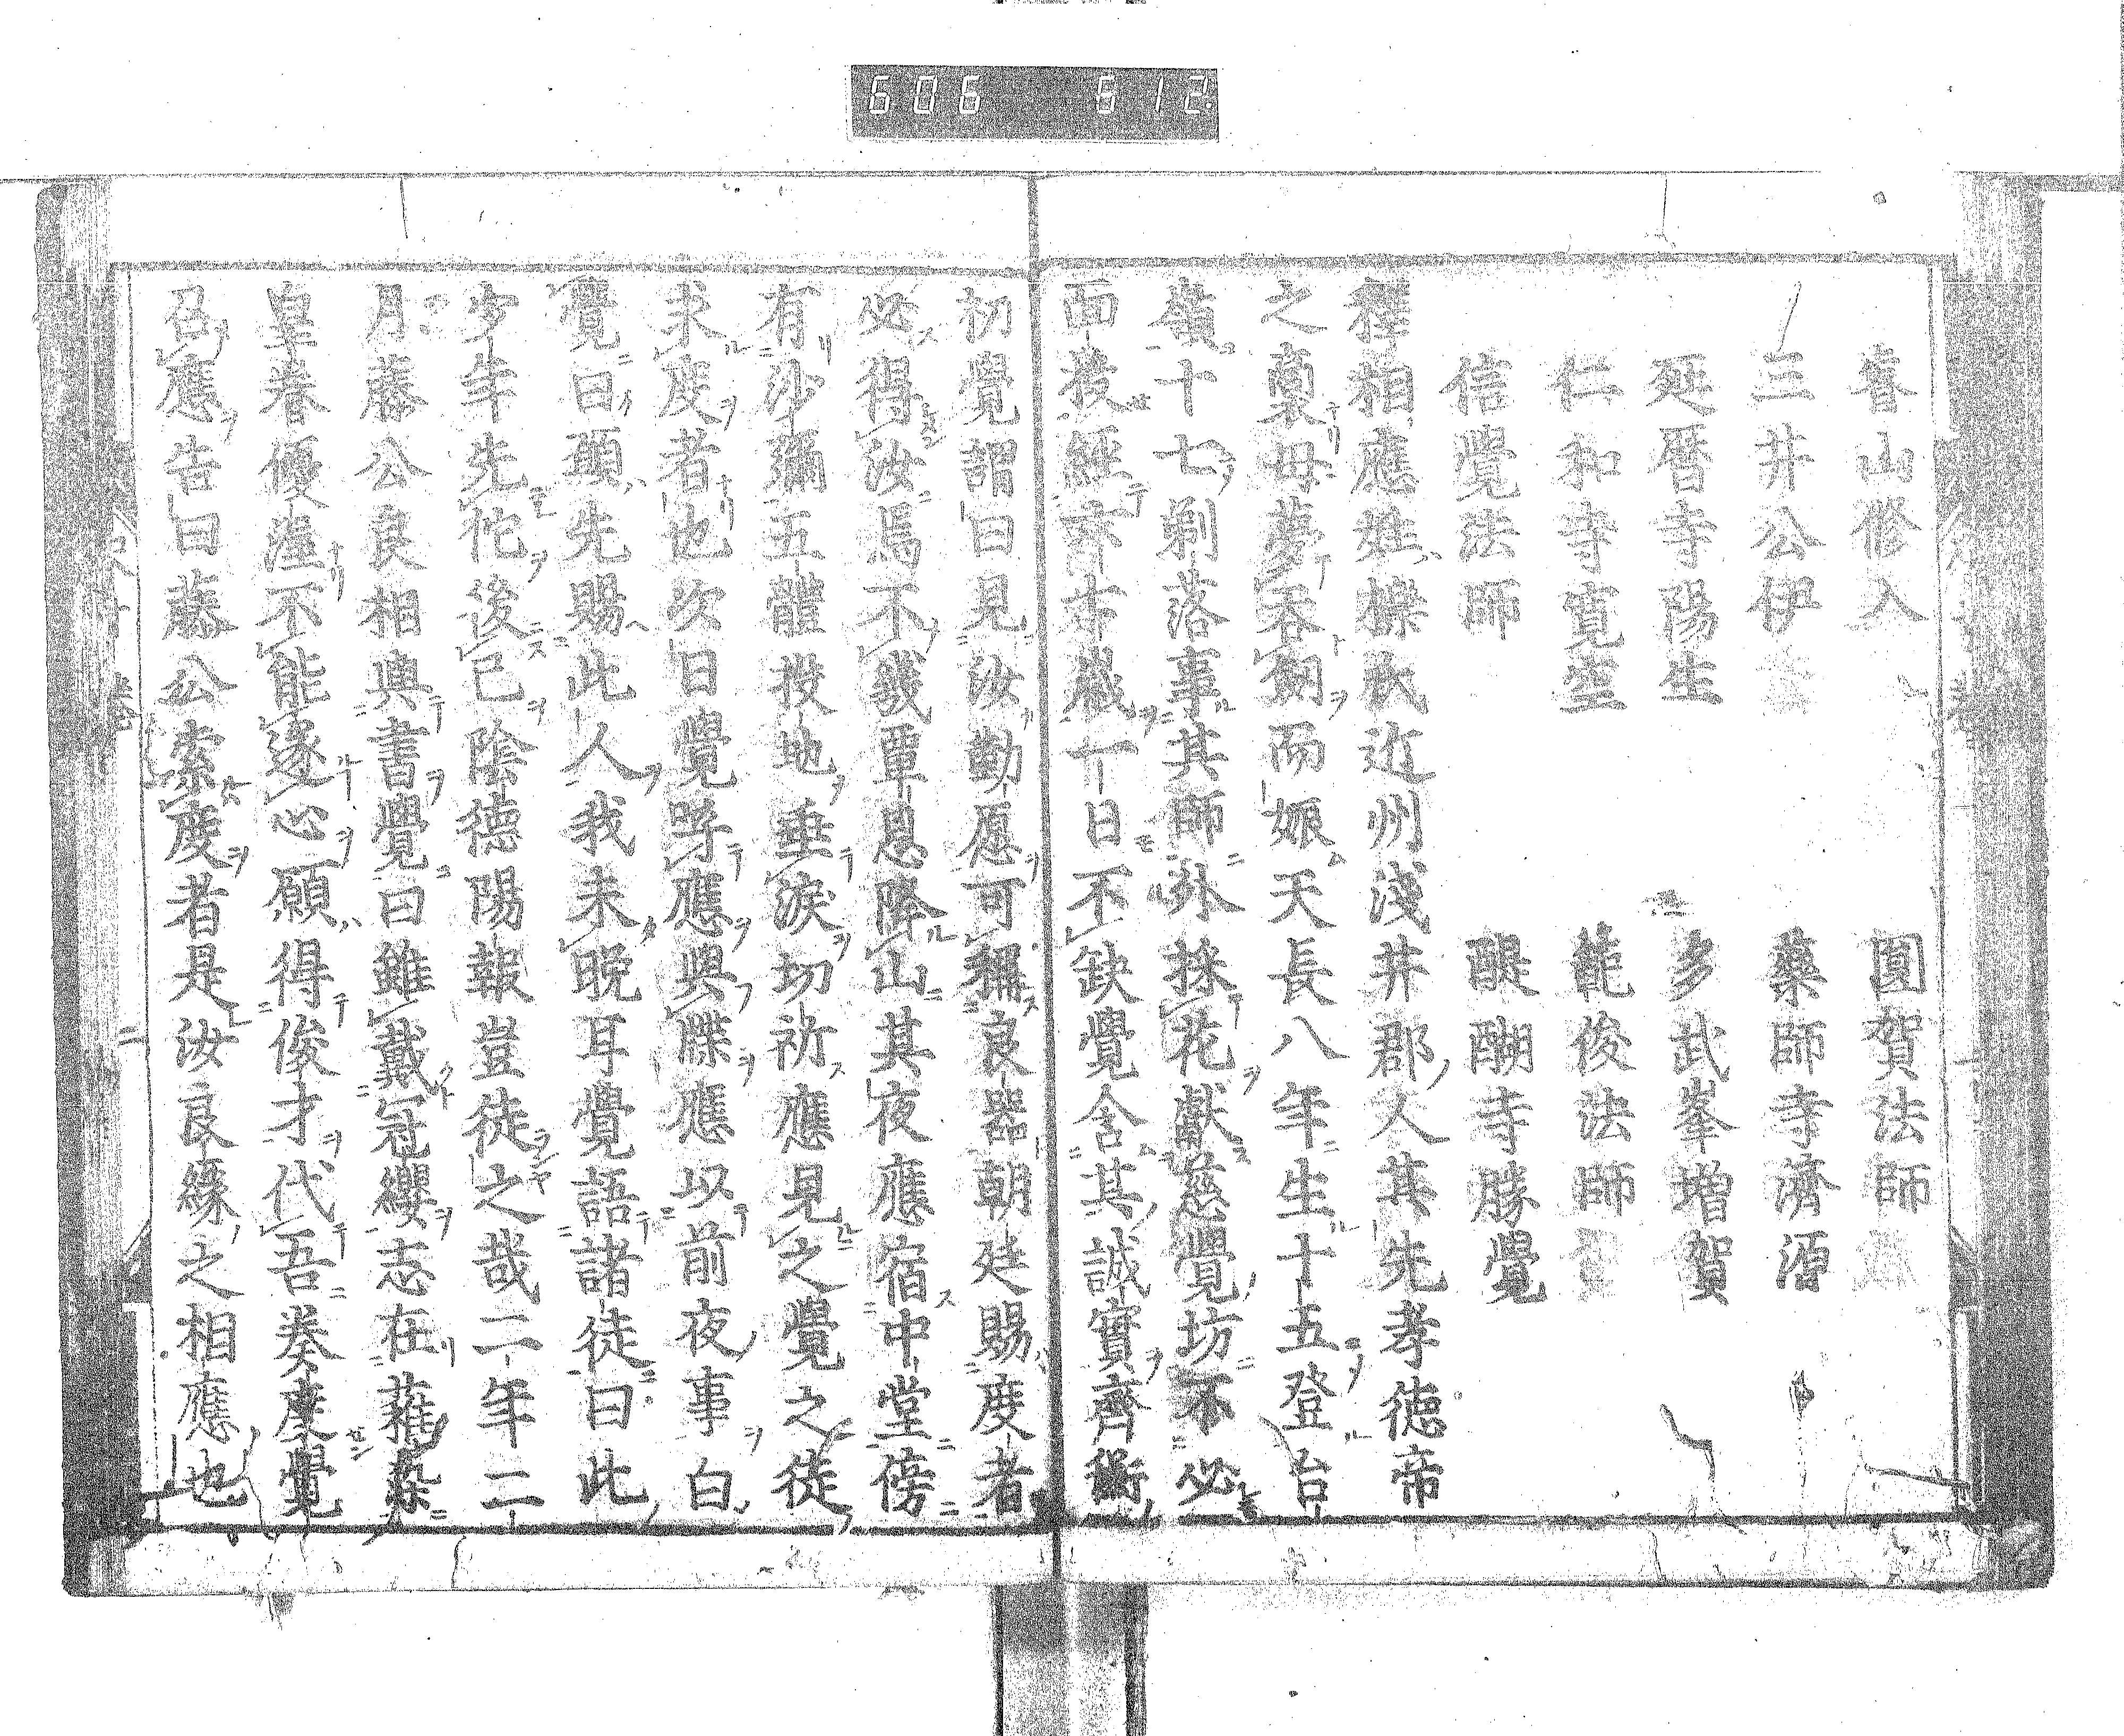 606 612
睿山修入 圓賀法師
三井公伊 藥師寺濟源
延曆寺陽生 多武峯増賀
仁和寺寬空 龍俊法師
信覺法師 醍醐寺勝覺
釋相應姓櫟氏近州淺井郡人其先孝德帝
之裏母夢吞劒而娠天長八年生十五登台
嶺十七剃落事其師外採花獻慈覺坊不必
面授經六七歲一日不缺覺含其誠實齊衡
初覺謂曰見汝勤愿可稱良器朝廷賜度者
必得汝焉不幾覃恩降山其夜應宿中堂傍
有沙彌五體投地垂淚切祈應見之覺之徒
求度者也次日覺呼應與牒應以前夜事白
覺曰願先賜此人我未晚耳覺語諸徒曰此
少年先佗後己陰德陽報豈徒之哉二年二
月藤公良相與書覺曰雖戴冠纓志在薙染
皇眷優渥不能遂心願得俊才代吾奏度覺
召應告曰藤公索度者是汝良緣之相應也
二